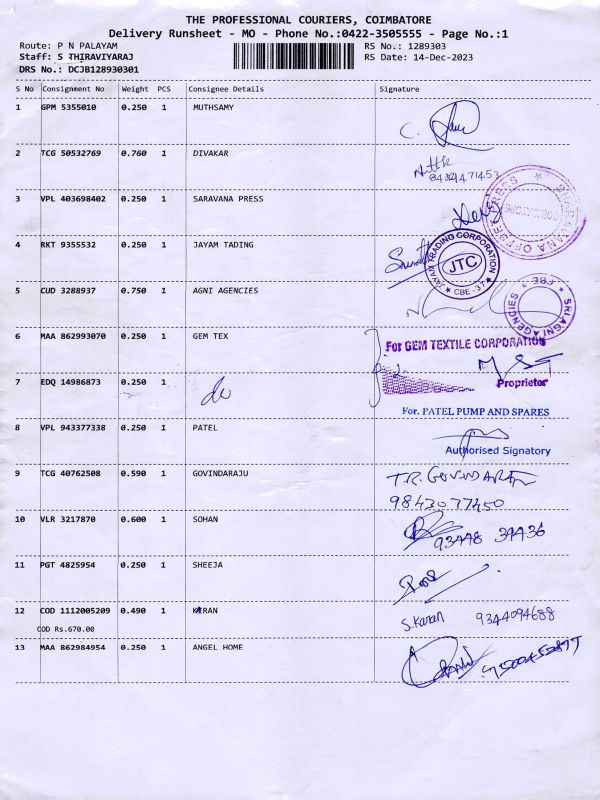 THE PROFESSIONAL COURIERS, COIMBATORE
Delivery Runsheet - MO - Phone No.:0422-3505555 - Page No.:1
Route: P N PALAYAM RS No.: 1289303
Staff: S THIRAVIYARAJ RS Date: 14-Dec-2023
DRS No.: DCJB128930301
S No Consignment No Weight PCS Consignee Details Signature
1 GPM 5355010 0.250 1 MUTHSAMY
2 TCG 50532769 0.760 1 DIVAKAR
3 VPL 403698402 0.250 1 SARAVANA PRESS
4 RKT 9355532 0.250 1 JAYAM TADING
JAYAM TRADING CORPORATION
JTC
★ CBE - 37 ★
5 CUD 3288937 0.750 1 AGNI AGENCIES
SRI AGNI AGENCIES
★ CBE ★
6 MAA 862993070 0.250 1 GEM TEX
For GEM TEXTILE CORPORATION
Proprietor
7 EDQ 14986873 0.250 1 do
For. PATEL PUMP AND SPARES
8 VPL 943377338 0.250 1 PATEL
Authorised Signatory
9 TCG 40762508 0.590 1 GOVINDARAJU
9843077450
10 VLR 3217870 0.600 1 SOHAN
93448 39436
11 PGT 4825954 0.250 1 SHEEJA
12 COD 1112005209 0.490 1 KIRAN S. Karan 9344094688
COD Rs.670.00
13 MAA 862984954 0.250 1 ANGEL HOME